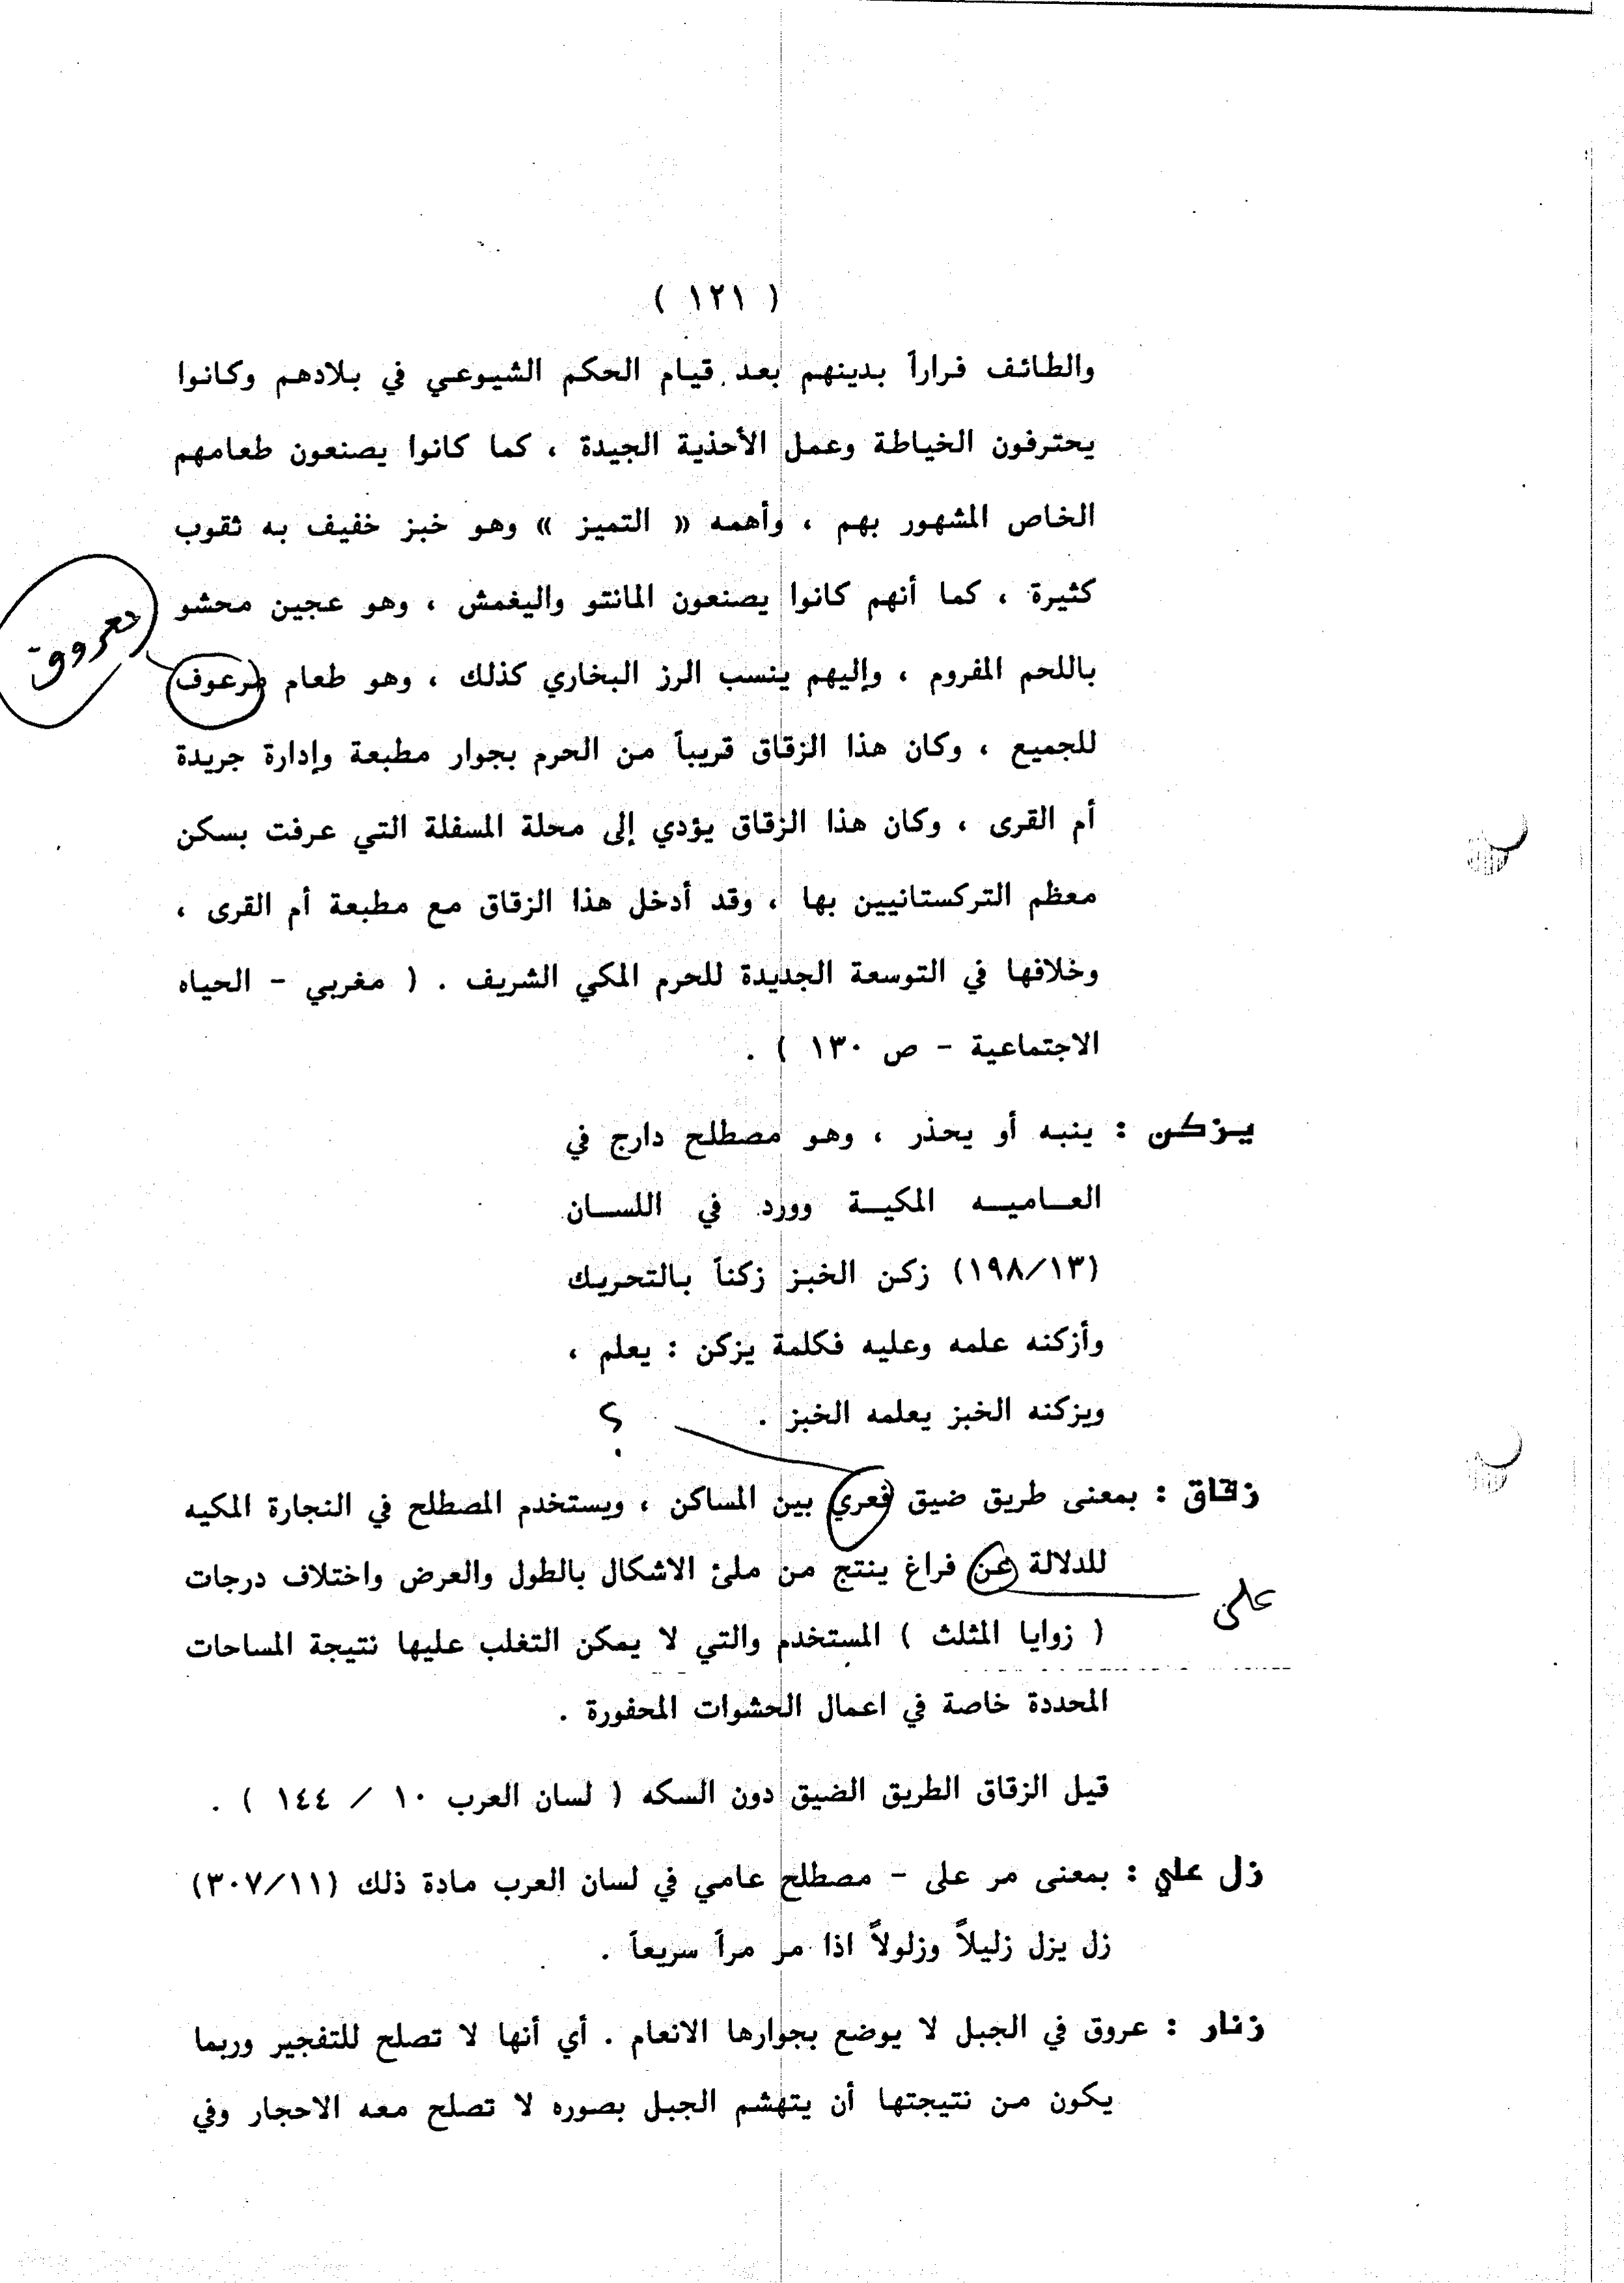 ( ١٢١ )
والطائف فراراً بدينهم بعد قيام الحكم الشيوعي في بلادهم وكانوا
يحترفون الخياطة وعمل الأحذية الجيدة ، كما كانوا يصنعون طعامهم
الخاص المشهور بهم ، وأهمه « التميز » وهو خبز خفيف به ثقوب
كثيرة ، كما أنهم كانوا يصنعون المانتو واليغمش ، وهو عجين محشو
باللحم المفروم ، وإليهم ينسب الرز البخاري كذلك ، وهو طعام مرعوف
معروف
للجميع ، وكان هذا الزقاق قريباً من الحرم بجوار مطبعة وإدارة جريدة
أم القرى ، وكان هذا الزقاق يؤدي إلى محلة المسفلة التي عرفت بسكن
معظم التركستانيين بها ، وقد أدخل هذا الزقاق مع مطبعة أم القرى ،
وخلافها في التوسعة الجديدة للحرم المكي الشريف . ( مغربي - الحياه
الاجتماعية - ص ١٣٠ ) .
يـزكـن : ينبه أو يحذر ، وهو مصطلح دارج في
العـاميـه المكيـة وورد في اللسـان
(١٩٨/١٣) زكن الخبز زكناً بالتحريك
وأزكنه علمه وعليه فكلمة يزكن : يعلم ،
ويزكنه الخبز يعلمه الخبز .
؟
زقاق : بمعنى طريق ضيق فعري بين المساكن ، ويستخدم المصطلح في النجارة المكيه
للدلالة عن فراغ ينتج من ملئ الاشكال بالطول والعرض واختلاف درجات
على
( زوايا المثلث ) المستخدم والتي لا يمكن التغلب عليها نتيجة المساحات
المحددة خاصة في اعمال الحشوات المحفورة .
قيل الزقاق الطريق الضيق دون السكه ( لسان العرب ١٠ / ١٤٤ ) .
زل علي : بمعنى مر على - مصطلح عامي في لسان العرب مادة ذلك (٣٠٧/١١)
زل يزل زليلاً وزلولاً اذا مر مراً سريعاً .
زنار : عروق في الجبل لا يوضع بجوارها الانعام . أي أنها لا تصلح للتفجير وربما
يكون من نتيجتها أن يتهشم الجبل بصوره لا تصلح معه الاحجار وفي